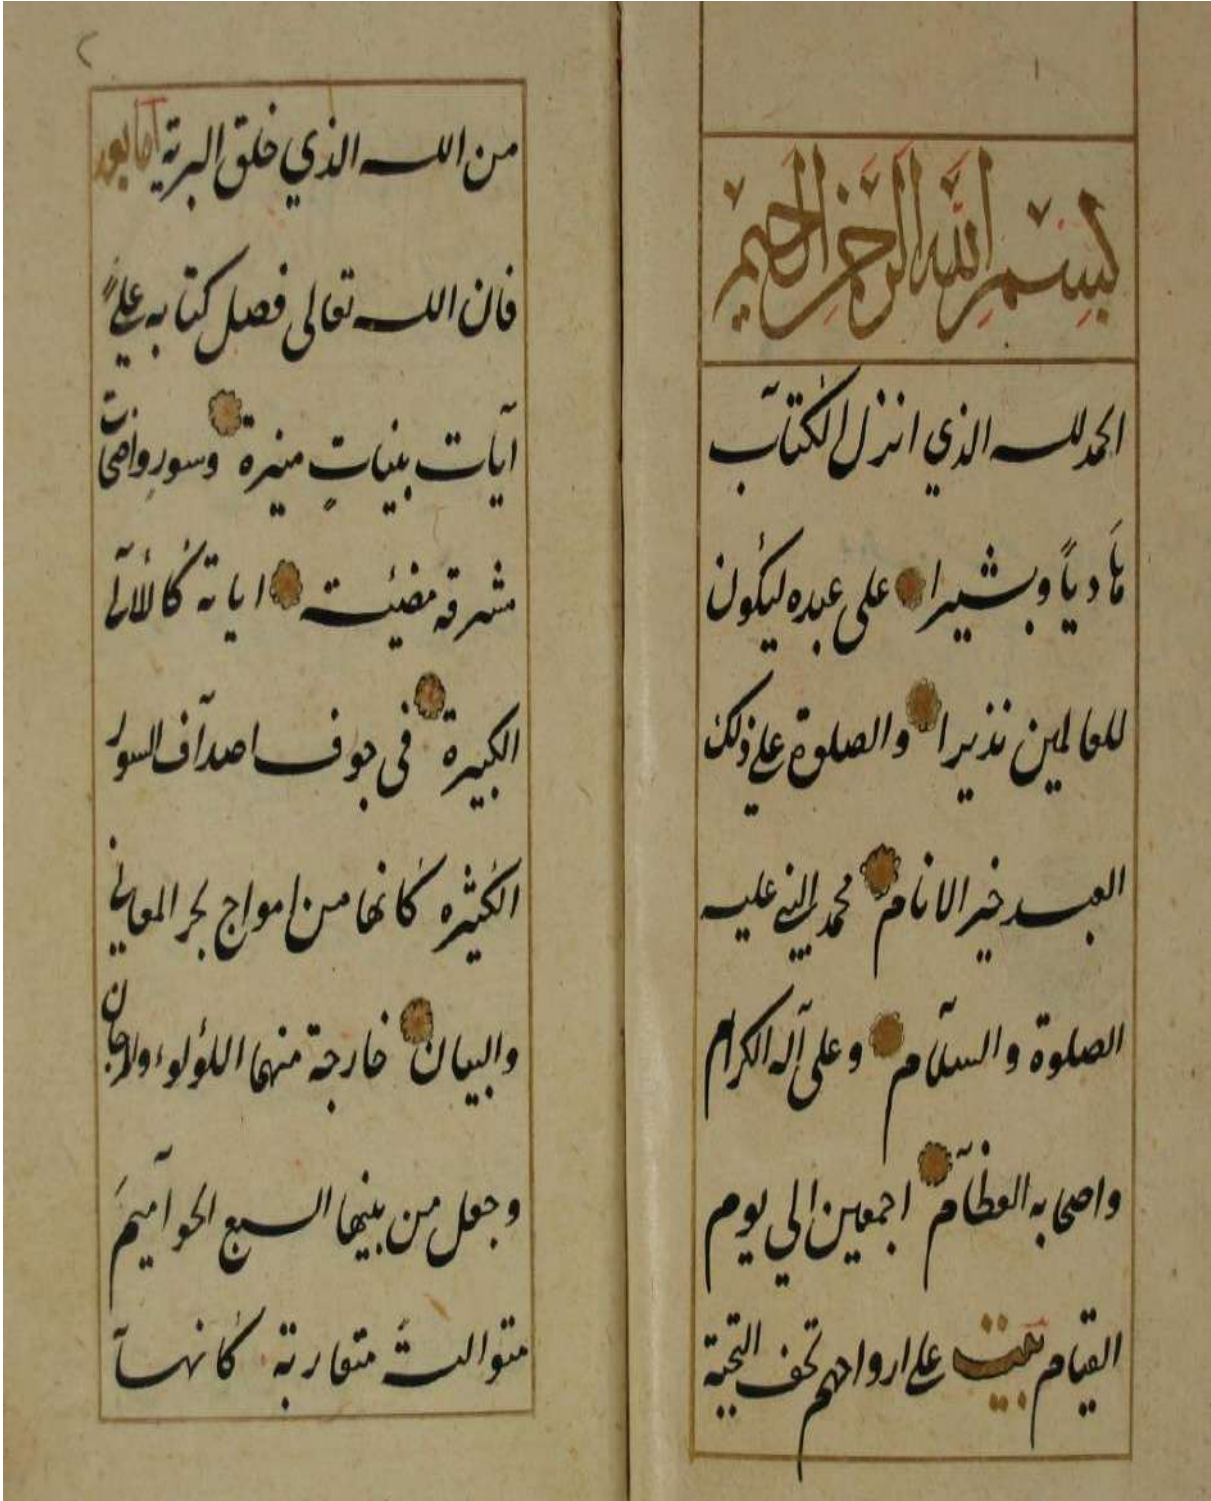 بسم الله الرحمن الرحيم
الحمد لله الذي انزل الكتاب
هَادياً وبشيرا على عبده ليكون
للعالمين نذيرا والصلوة على ذلك
العبد خير الانام محمد النبي عليه
الصلوة والسلام وعلى آله الكرام
واصحابه العظام اجمعين الي يوم
القيام بيت على ارواحهم تحف التحية
من الله الذي خلق البرية اما بعد
فان الله تعالى فصل كتابه علي
آيات بينات منيرة وسور واضحات
مشرقه مضيئة اياته كالألآلى
الكبيرة في جوف اصداف السور
الكثيره كانها من امواج بحر المعاني
والبيان خارجة منهما اللؤلوء والمرجان
وجعل من بينها السبع الحواميم
متوالية متقاربة كانها